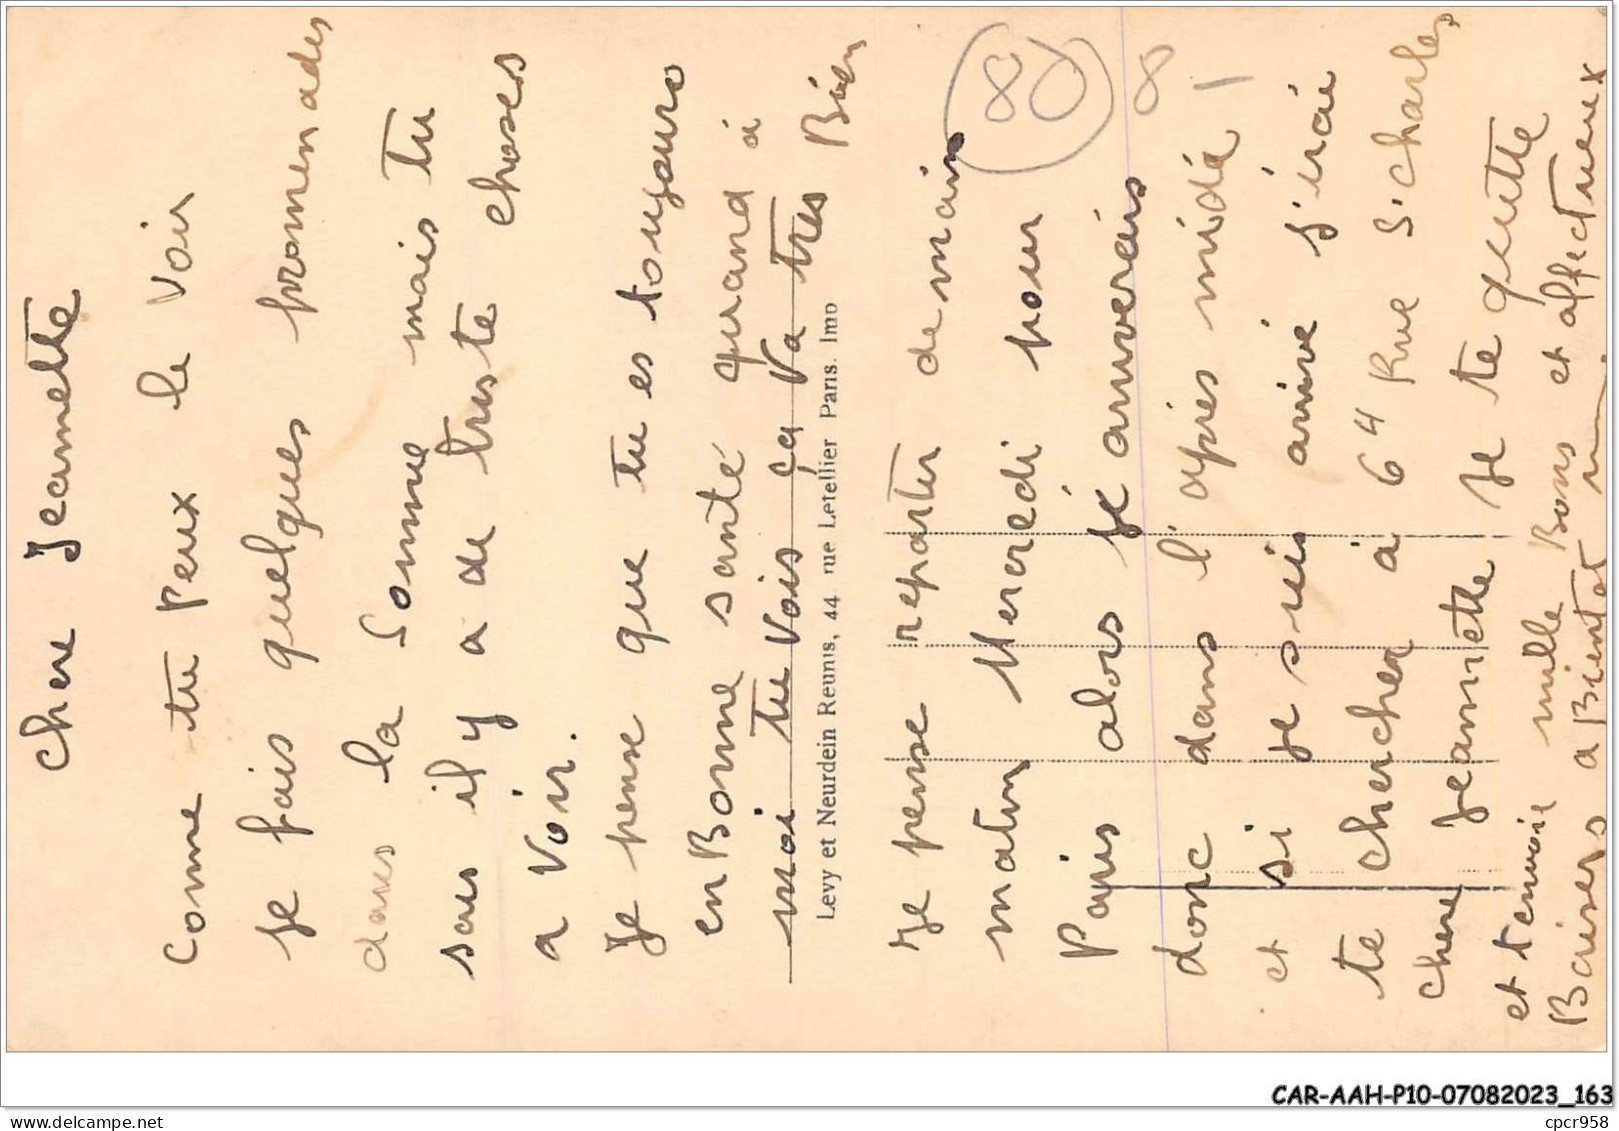 chere Jeannette
comme tu Peux le Voir
je fais quelques promenades
dans la Somme mais Tu
sais il y a de triste choses
a Voir.
Je pense que tu es toujours
en Bonne santé quand à
moi tu Vois ça Va tres Bien
Levy et Neurdein Reunis, 44 rue Letellier Paris. Imp
Je pense repartir demain
matin Mercredi pour
Paris alors je arriverais
donc dans l'apres midi
et si je suis arrivé j'irai
te chercher à 64 Rue St charles
chere Jeannette je te quitte
et t'envoie mille Bons et affectueux
Baisers a Bientot
80
8
CAR-AAH-P10-07082023_163
www.delcampe.net
cpcr958